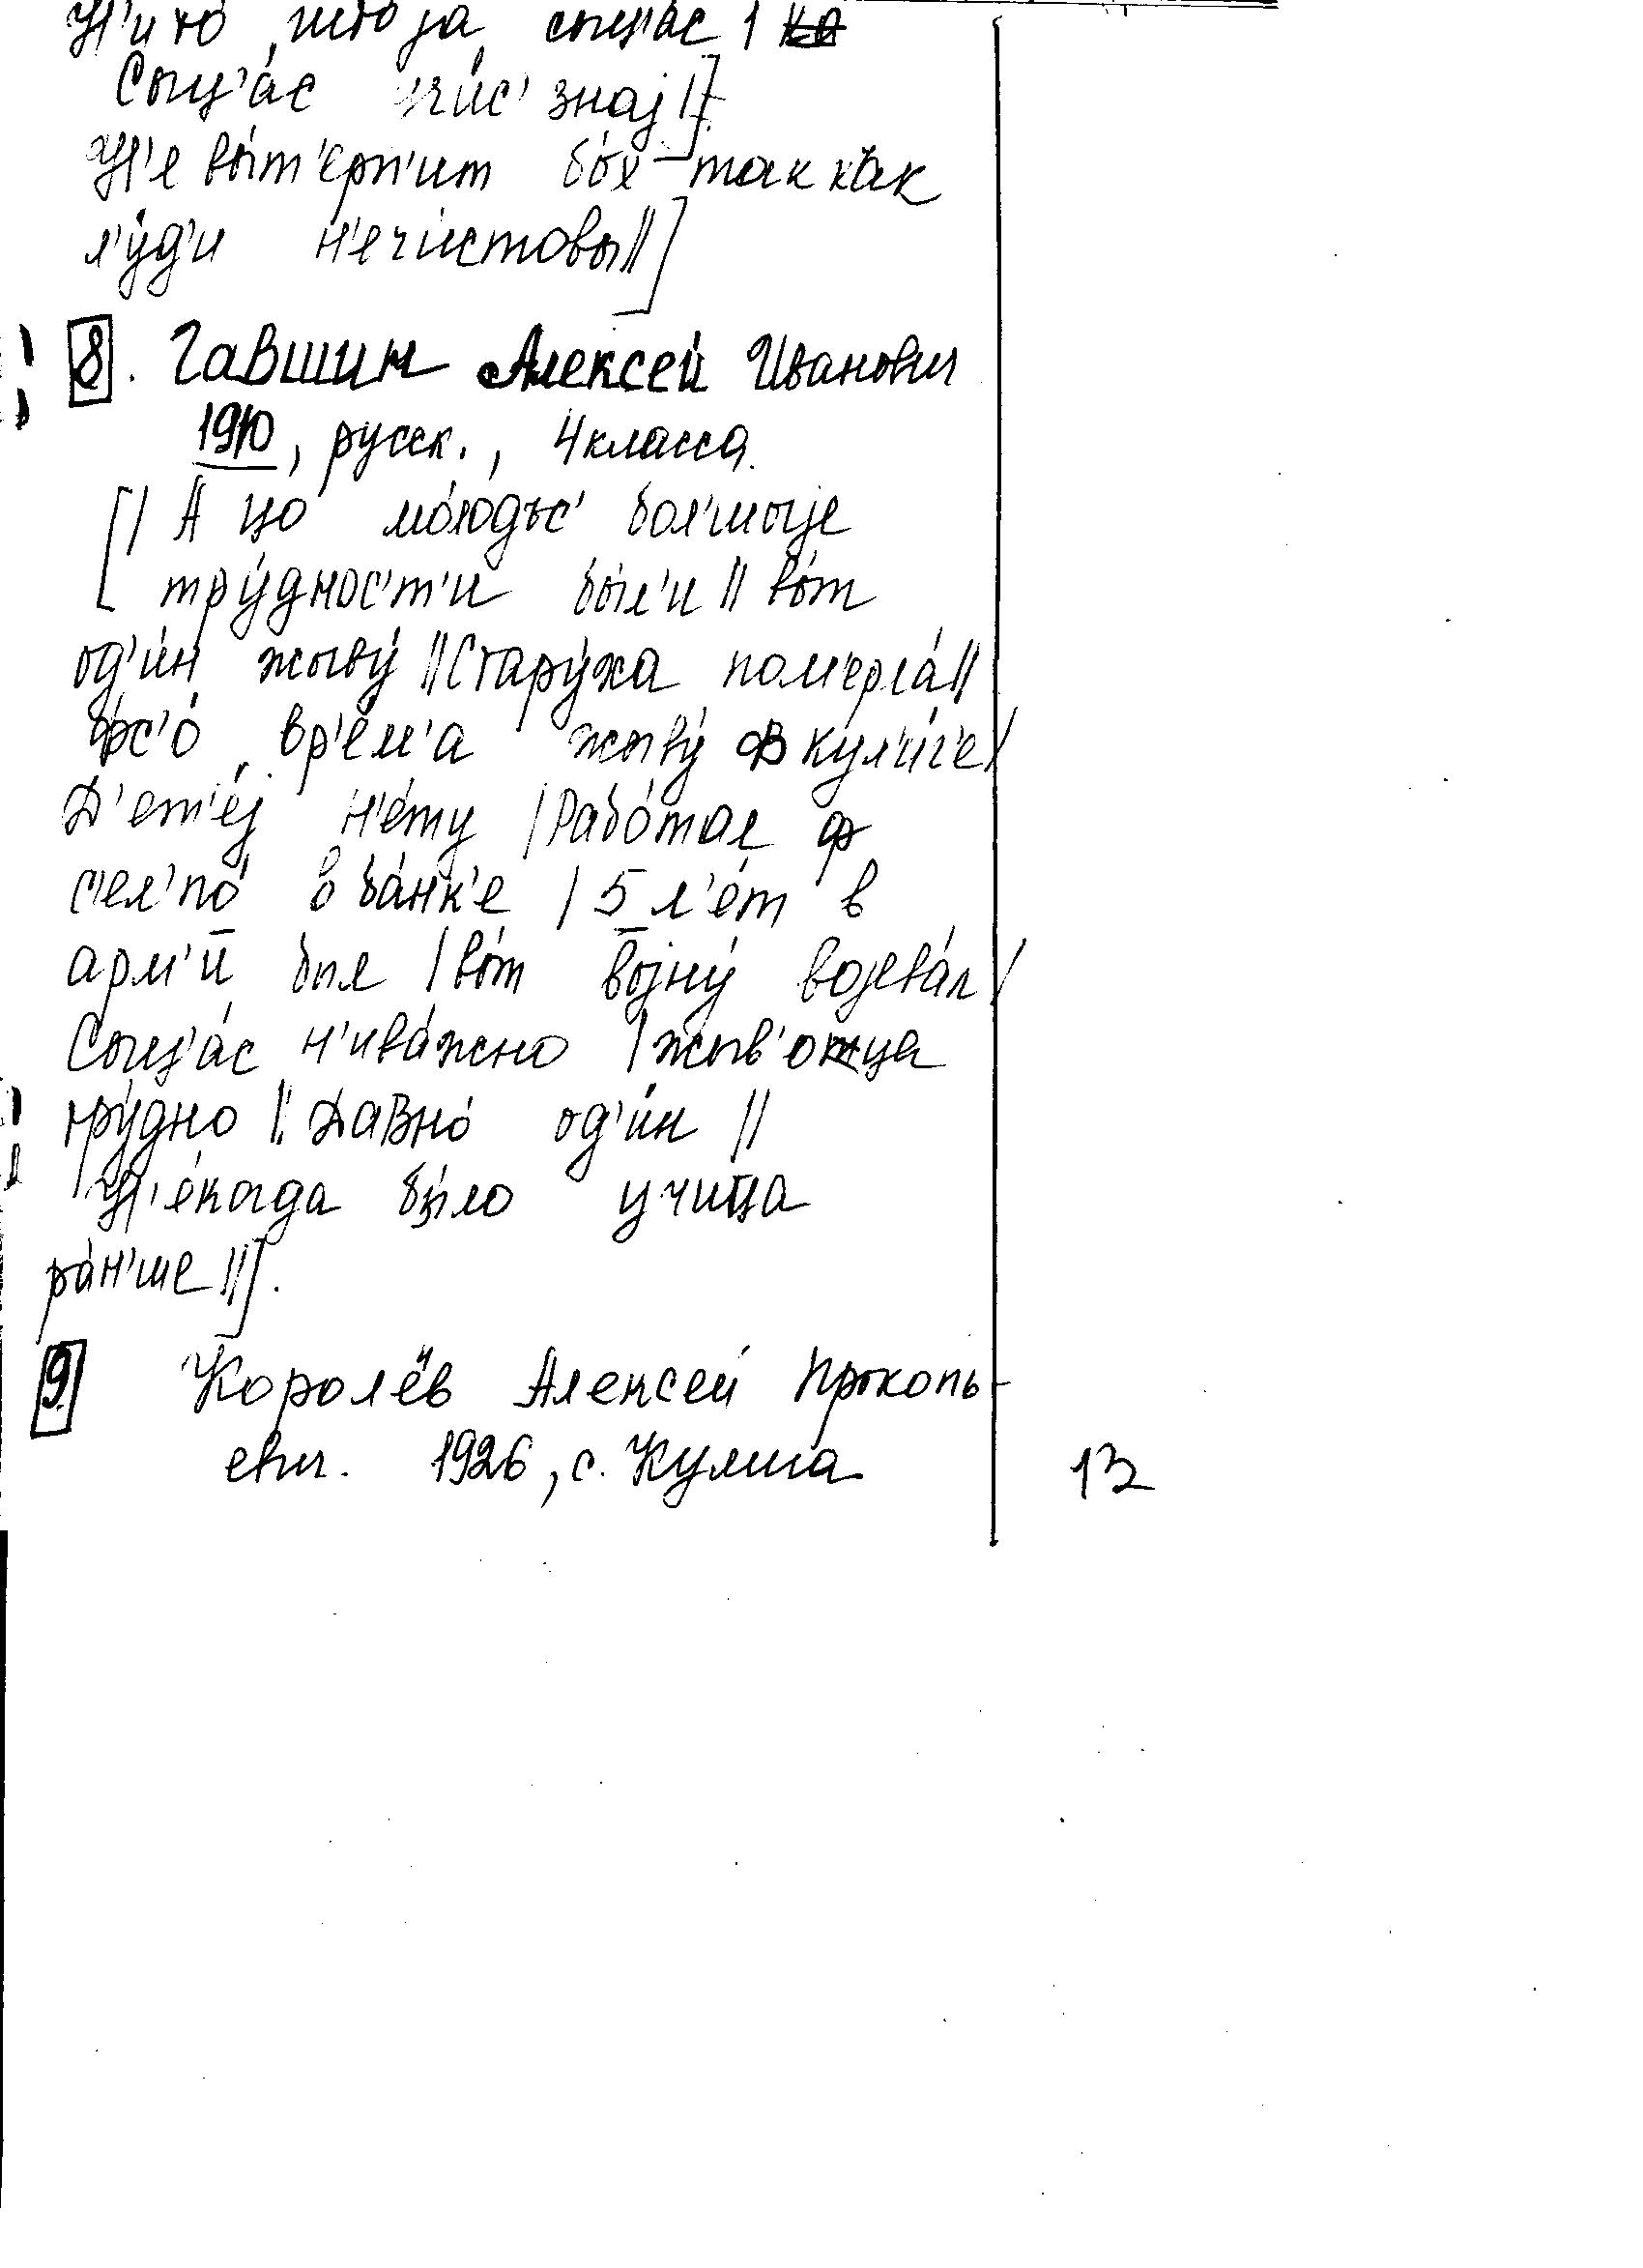 Н'ихо́ што jа сыц'а́с |
Сыц'а́с чи́с' знаj||].
Н'е вы́т'ерп'ит бо́х так ка́к
л'у́д'и н'ечи́стовы||]
8. Гавшин Алексей Иванович
1910, русск., 4 класса.
[| А цо́ мо́лодъс' бол'шыjе
тру́дност'и бы́л'и || во́т
од'и́н жыву́ || Стару́ха пом'ерла́ ||
фс'о́ вр'е́м'а жыву́ ф кул'и́г'е /
Д'ет'е́j н'е́ту | Рабо́тал ф
с'ел'по́ в ба́нк'е | 5 л'е́т в
арм'и́ был | во́т воjну́ воjева́л /
Сыц'а́с н'ива́жно | жыв'о́тца
тру́дно |. Давно́ од'и́н ||
Н'е́когда бы́ло учи́ца
ра́н'ше ||].
9 Королёв Алексей Прокопь-
евич. 1926, с. Кулига
13